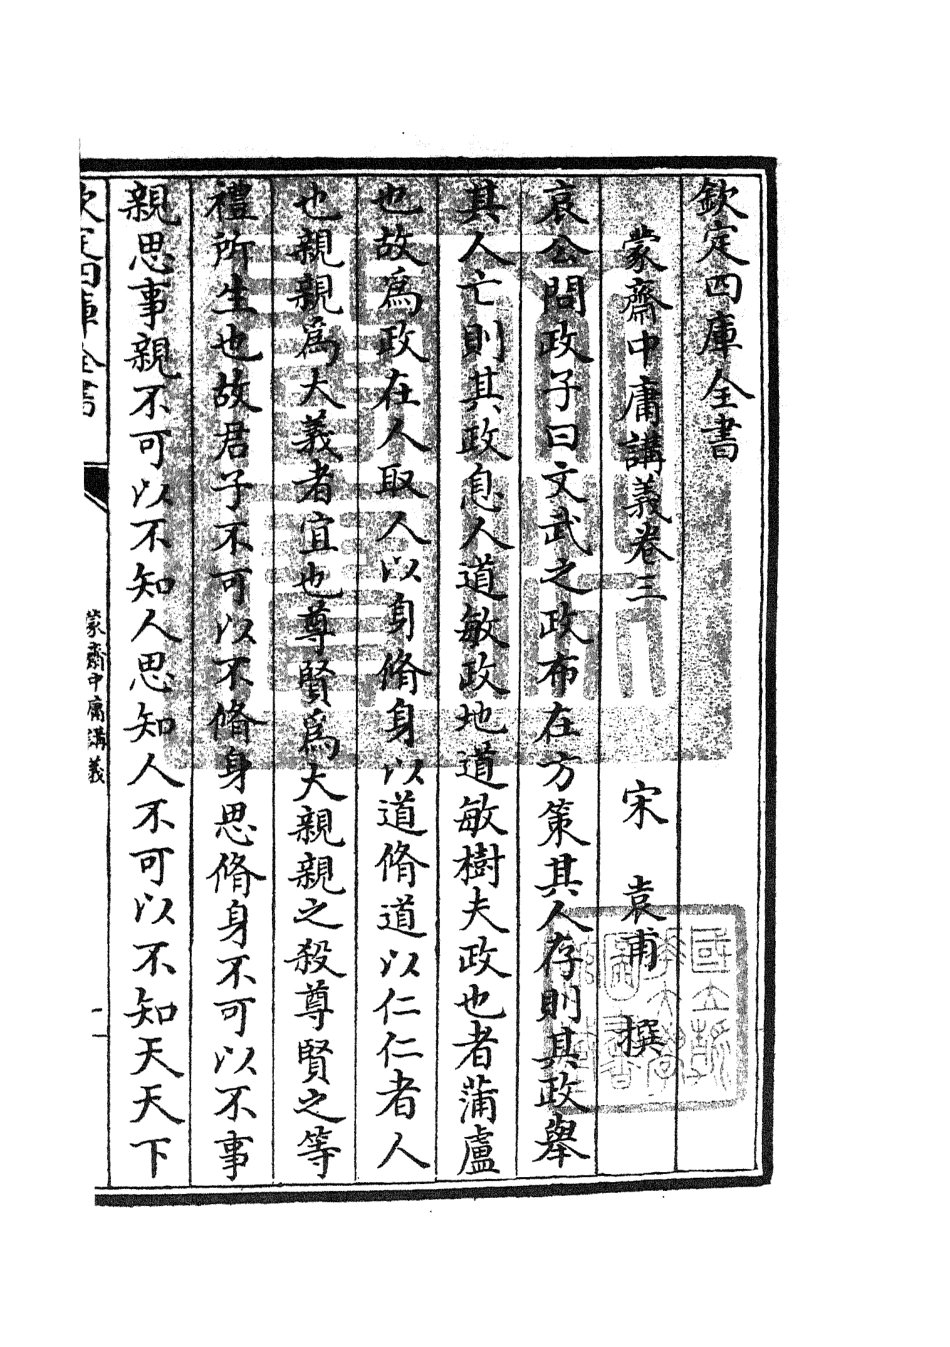 欽定四庫全書
蒙齋中庸講義卷三
宋 袁甫 撰
哀公問政子曰文武之政布在方策其人存則其政舉
其人亡則其政息人道敏政地道敏樹夫政也者蒲盧
也故為政在人取人以身脩身以道脩道以仁仁者人
也親親為大義者宜也尊賢為大親親之殺尊賢之等
禮所生也故君子不可以不脩身思脩身不可以不事
親思事親不可以不知人思知人不可以不知天天下
欽定四庫全書
蒙齋中庸講義
一